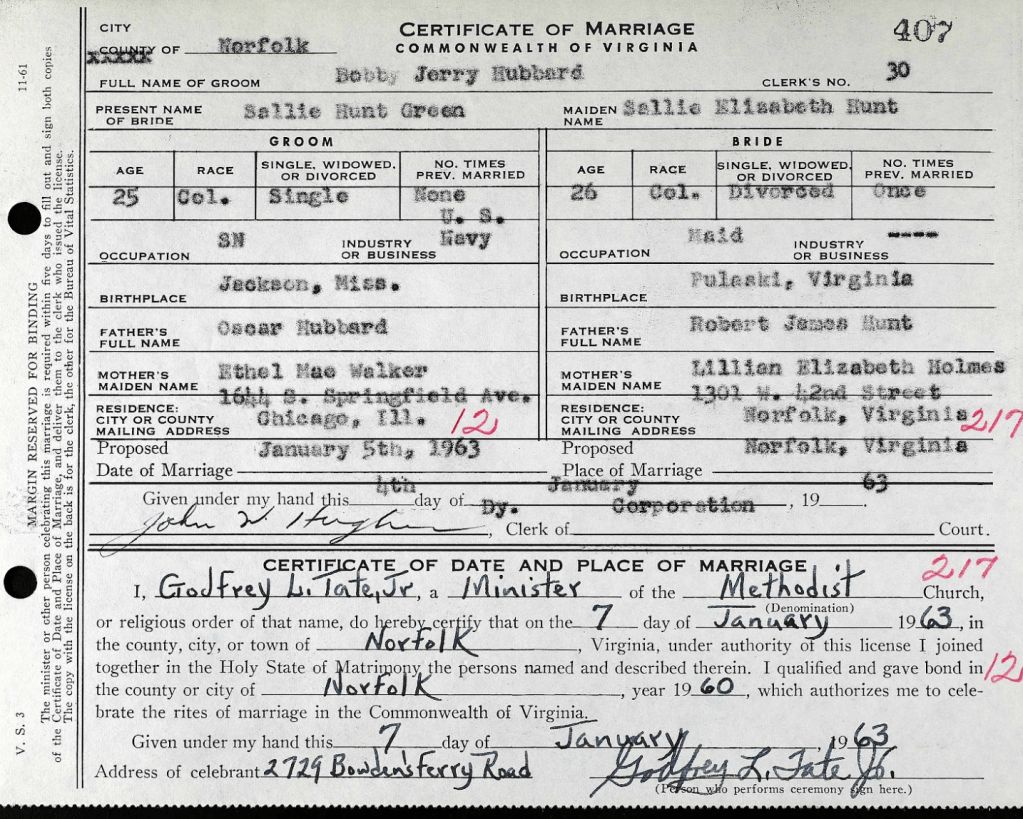 CITY CERTIFICATE OF MARRIAGE 407
COUNTY OF Norfolk COMMONWEALTH OF VIRGINIA
FULL NAME OF GROOM Bobby Jerry Hubbard CLERK'S NO. 30
PRESENT NAME OF BRIDE Sallie Hunt Green MAIDEN NAME Sallie Elizabeth Hunt
GROOM BRIDE
AGE RACE SINGLE, WIDOWED, OR DIVORCED NO. TIMES PREV. MARRIED AGE RACE SINGLE, WIDOWED, OR DIVORCED NO. TIMES PREV. MARRIED
25 Col. Single None 26 Col. Divorced Once
OCCUPATION SN INDUSTRY OR BUSINESS U. S. Navy OCCUPATION Maid INDUSTRY OR BUSINESS ----
BIRTHPLACE Jackson, Miss. BIRTHPLACE Pulaski, Virginia
FATHER'S FULL NAME Oscar Hubbard FATHER'S FULL NAME Robert James Hunt
MOTHER'S MAIDEN NAME Ethel Mae Walker MOTHER'S MAIDEN NAME Lillian Elizabeth Holmes
1644 S. Springfield Ave. 1301 W. 42nd Street
RESIDENCE: CITY OR COUNTY MAILING ADDRESS Chicago, Ill. 12 RESIDENCE: CITY OR COUNTY MAILING ADDRESS Norfolk, Virginia 217
Proposed Date of Marriage January 5th, 1963 Proposed Place of Marriage Norfolk, Virginia
Given under my hand this 4th day of January, 1963.
John W. Hughes, Dy. Clerk of Corporation Court.
CERTIFICATE OF DATE AND PLACE OF MARRIAGE 217
I, Godfrey L. Tate, Jr, a Minister of the Methodist Church,
(Denomination)
or religious order of that name, do hereby certify that on the 7 day of January 1963, in
the county, city, or town of Norfolk, Virginia, under authority of this license I joined
together in the Holy State of Matrimony the persons named and described therein. I qualified and gave bond in 12
the county or city of Norfolk, year 1960, which authorizes me to cele-
brate the rites of marriage in the Commonwealth of Virginia.
Given under my hand this 7 day of January, 1963
Address of celebrant 2729 Bowden's Ferry Road Godfrey L. Tate Jr.
(Person who performs ceremony sign here.)
V. S. 3 MARGIN RESERVED FOR BINDING 11-61
The minister or other person celebrating this marriage is required within five days to fill out and sign both copies
of the Certificate of Date and Place of Marriage, and deliver them to the clerk who issued the license.
The copy with the license on the back is for the clerk, the other for the Bureau of Vital Statistics.